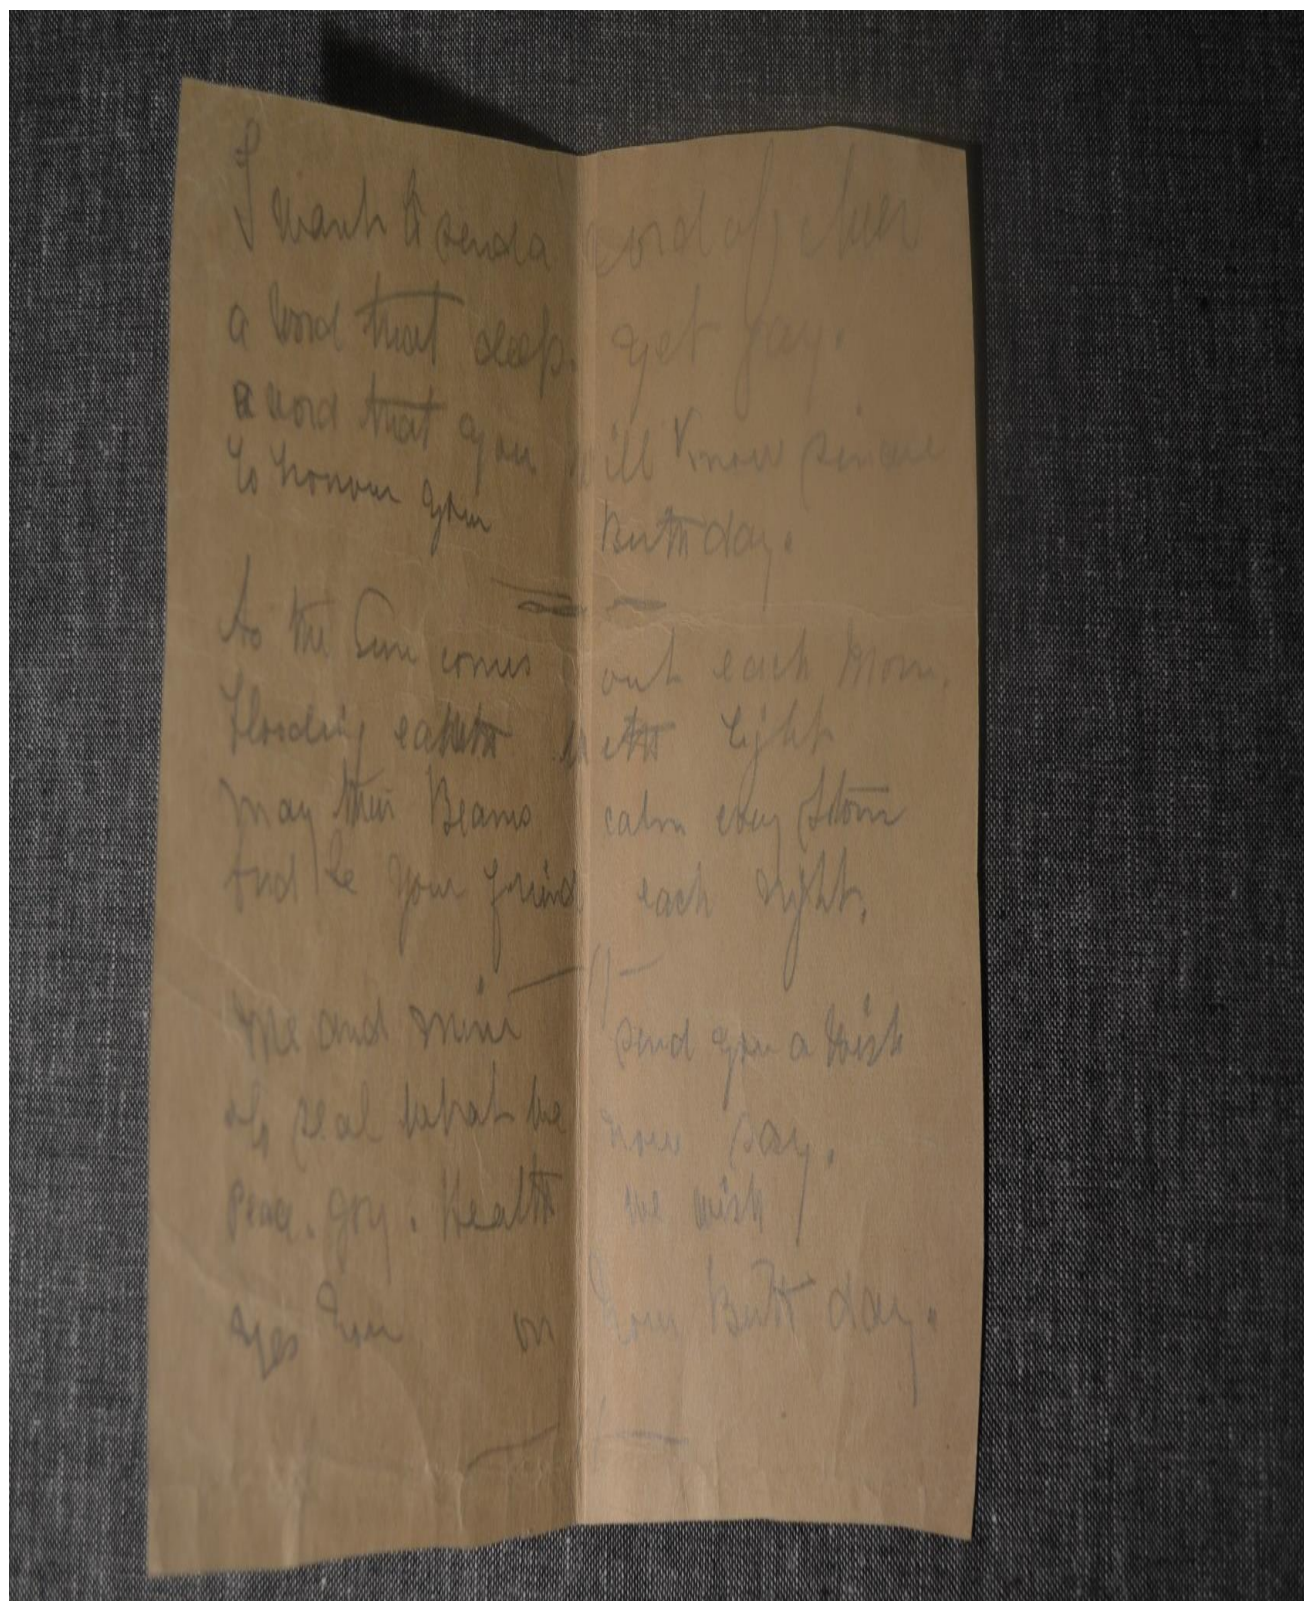 I want to send a word of cheer
a word that deep yet gay.
a word that you will know sincere
to honour your Birth day.
As the Sun comes out each Morn,
flooding earth with light
May their Beams calm every storm
And be your friend each night.
Me and mine send you a wish
of real what we now say.
Peace. Joy. Health we wish
yes You on Your Birth day.